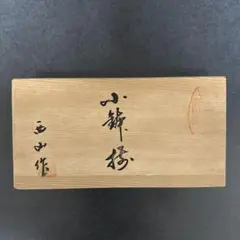 小鉢揃
西山作